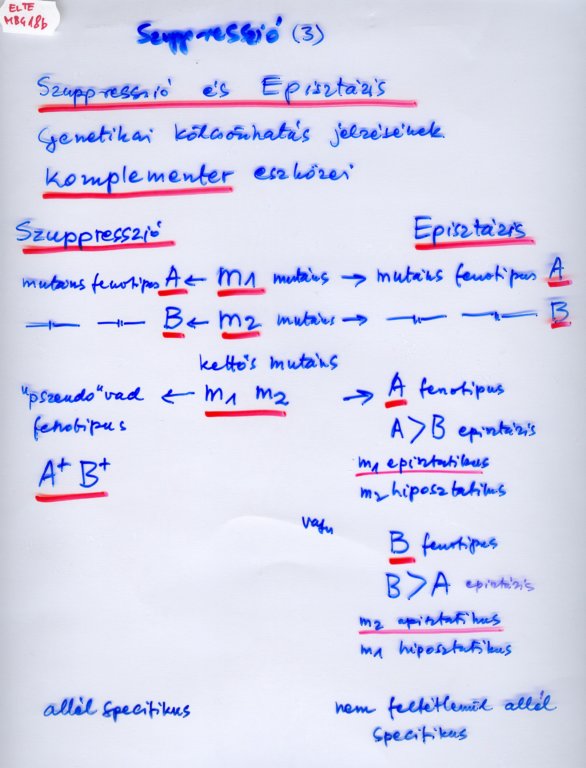 ELTE
MBG18b
Szuppresszió (3)
Szuppresszió és Episztázis
Genetikai kölcsönhatás jelzésének
komplementer eszközei
Szuppresszió Episztázis
mutáns fenotípus A ← m1 mutáns → mutáns fenotípus A
—"— —"— B ← m2 mutáns → —"— —"— B
kettős mutáns
"pszeudo"vad ← m1 m2 → A fenotípus
fenotípus A > B episztázis
A+ B+ m1 episztatikus
m2 hiposztatikus
vagy
B fenotípus
B > A episztázis
m2 episztatikus
m1 hiposztatikus
allél specifikus nem feltétlenül allél
specifikus